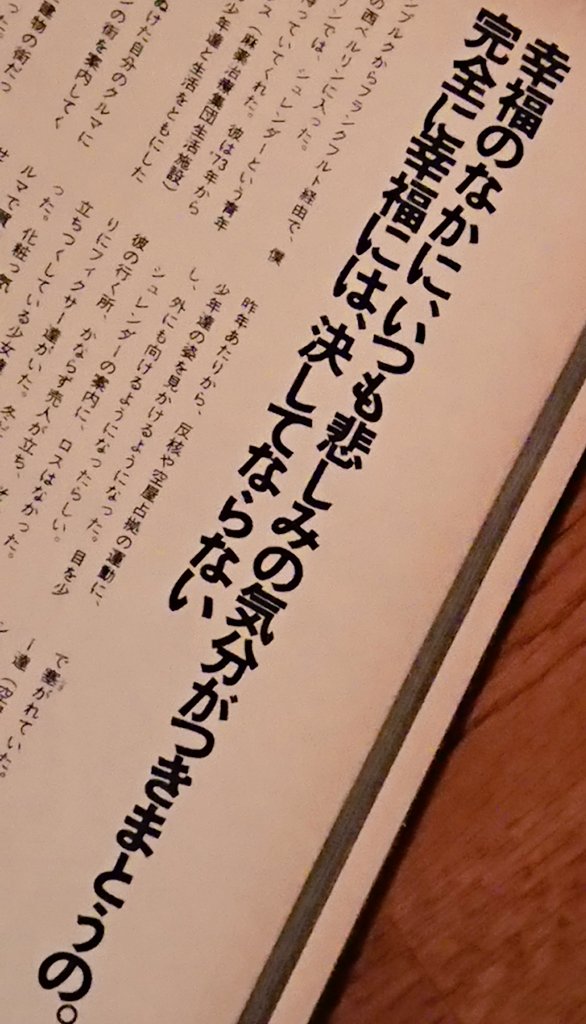 幸福のなかに、いつも悲しみの気分がつきまとうの。
完全に幸福には、決してならない
ンブルクからフランクフルト経由で、僕
の西ベルリンに入った。
リンでは、シュレンダーという青年
待っていてくれた。彼は'73年から
ス（麻薬治療集団生活施設）
少年達と生活をともにした
ぬけた自分のクルマに
ンの街を案内してく
建物の街だっ
った。
昨年あたりから、反核や空屋占拠の運動に、
少年達の姿を見かけるようになった。目を少
し、外にも向けるようになったらしい。
シュレンダーの案内に、ロスはなかった。
彼の行く所、かならず売人が立ち、
りにフィクサー達がいた。
立ちつくしている少女
った。化粧っ気
ルマで
せ
で塞がれていた。
ー達（空